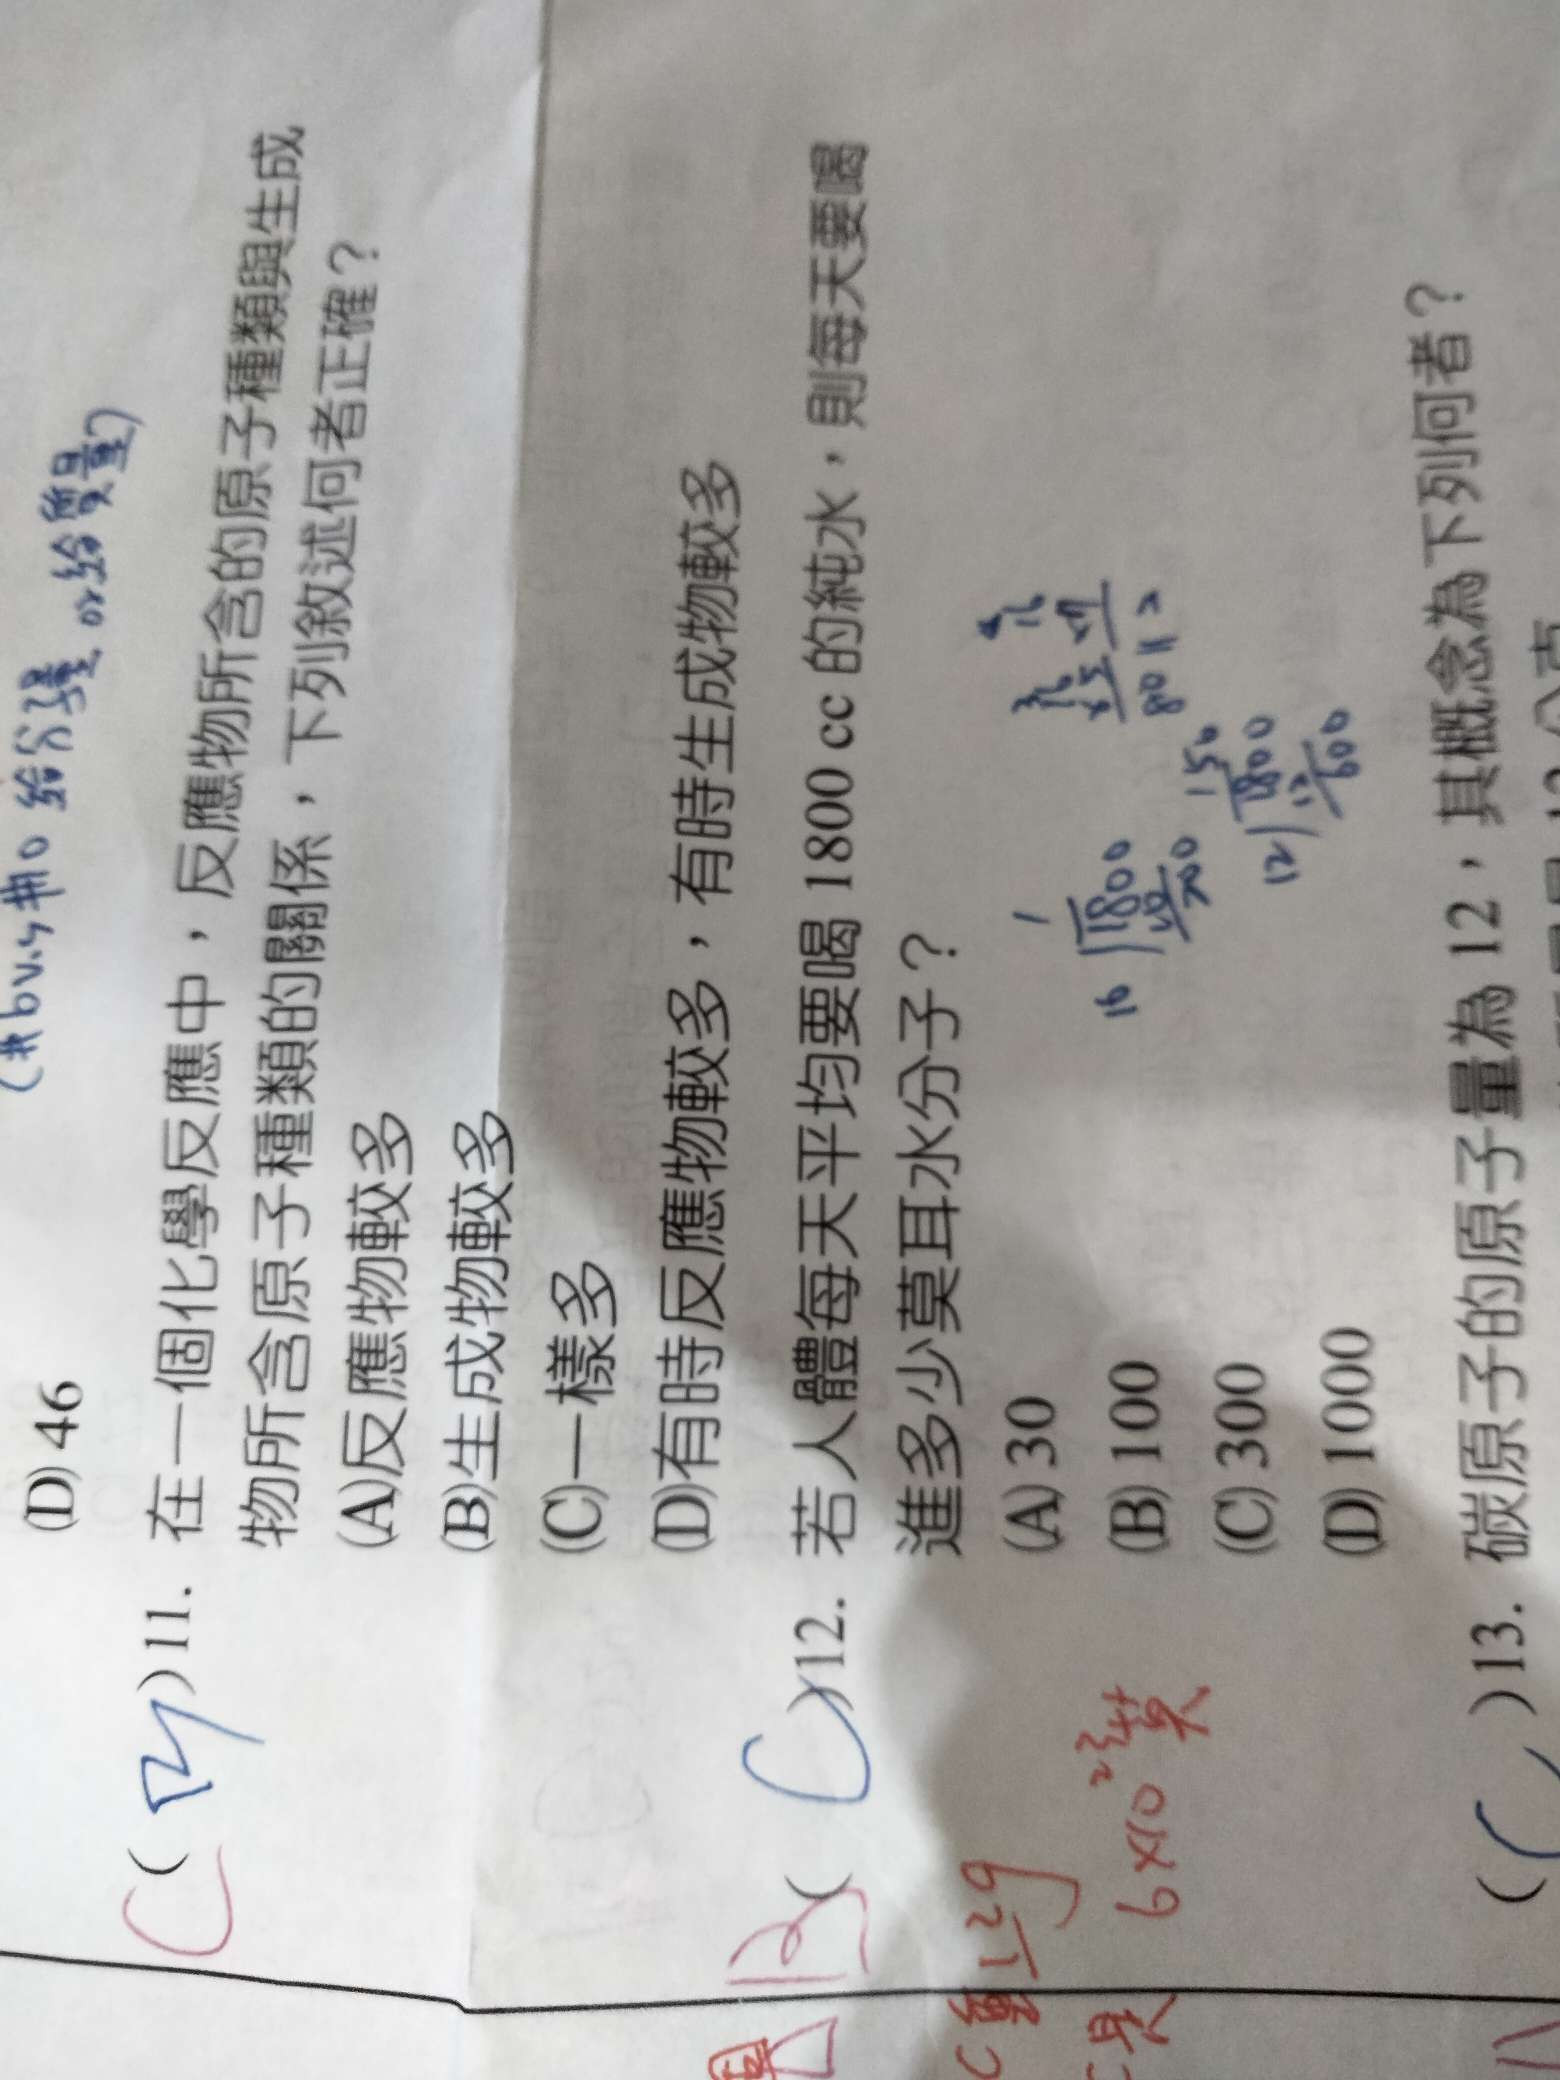 (D) 46
給分子量 or 給質量)
C ( D )11. 在一個化學反應中，反應物所含的原子種類與生成
物所含原子種類的關係，下列敘述何者正確？
(A)反應物較多
(B)生成物較多
(C)一樣多
(D)有時反應物較多，有時生成物較多
B ( C )12. 若人體每天平均要喝 1800 cc 的純水，則每天要喝
進多少莫耳水分子？
(A) 30
(B) 100
(C) 300
(D) 1000
16 1800
150
12 1800
12
600
16
×5
80
16
×7
112
C 質 12g
6×10 23
( C )13. 碳原子的原子量為 12，其概念為下列何者？